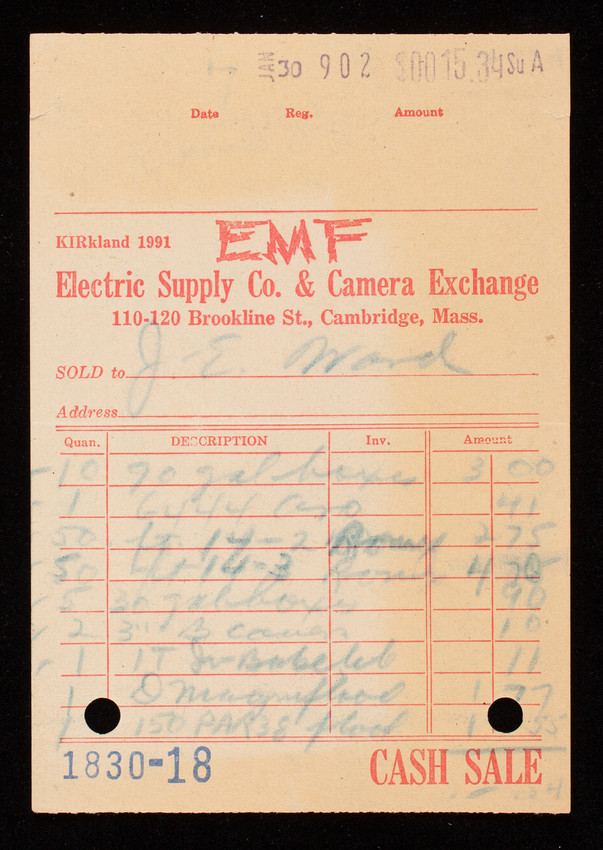 JAN 30 902 $0015.34 Su A
Date Reg. Amount
KIRkland 1991 EMF
Electric Supply Co. & Camera Exchange
110-120 Brookline St., Cambridge, Mass.
SOLD to J. E. Ward
Address
Quan. DESCRIPTION Inv. Amount
10 90 gal boxes 3 00
1 6444 41
50 ft 14-2 Romex 2 75
50 ft 14-3 Romex 4
5 30 gal boxes 90
2 3" B cover 10
1 1T 11
1 D 1 77
1 150 PAR38 flood 1 55
1830-18 CASH SALE